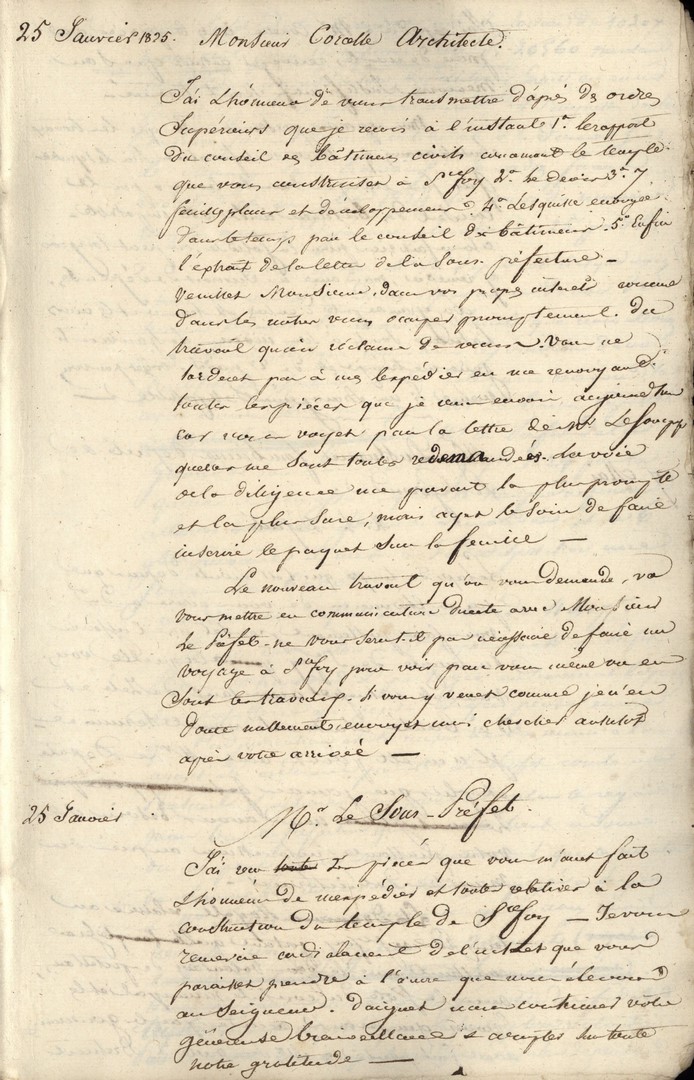 25 Janvier 1825. Monsieur Corcelle Architecte.
J'ai L'honneur de vous transmettre d'après des ordres
Supérieurs que je reçois à l'instant 1° le rapport
du conseil des bâtimens civils concernant le temple
que vous construisez à Ste foy 2° le devis 3° 7
feuilles plans et développemens 4° L'esquisse envoyée
dans le temps par le conseil des bâtimens 5° Enfin
l'extrait de la lettre de la Sous-préfecture —
Veuillez Monsieur, dans vos propres intérêts comme
dans les nôtres vous occuper promptement du
travail qu'on réclame de vous. Vous ne
tarderez pas à me l'expédier en me renvoyant
toutes les pièces que je vous envoie aujourd'hui
car vous voyez par la lettre de Mr Le Souspf
qu'elles me sont toutes redemandées. La voie
de la diligence me parait la plus prompte
et la plus sure, mais ayez le soin de faire
inscrire le paquet sur la feuille —
Le nouveau travail qu'on vous demande, va
vous mettre en communication directe avec Monsieur
Le Préfet - ne vous serait-il pas nécessaire de faire un
voyage à Ste foy pour voir par vous même où en
sont les travaux. Si vous y venez comme je n'en
doute nullement, envoyez moi chercher aussitot
après votre arrivée —
25 Janvier
Mr. Le Sous-Préfet.
J'ai reçu toutes les pièces que vous m'avez fait
L'honneur de m'expédier et toutes relatives à la
construction du temple de Ste foy — Je vous
remercie cordialement de l'intérêt que vous
paraissez prendre à l'œuvre que nous élevons
au Seigneur. Daignez nous continuer votre
généreuse bienveillance & comptez sur toute
notre gratitude —